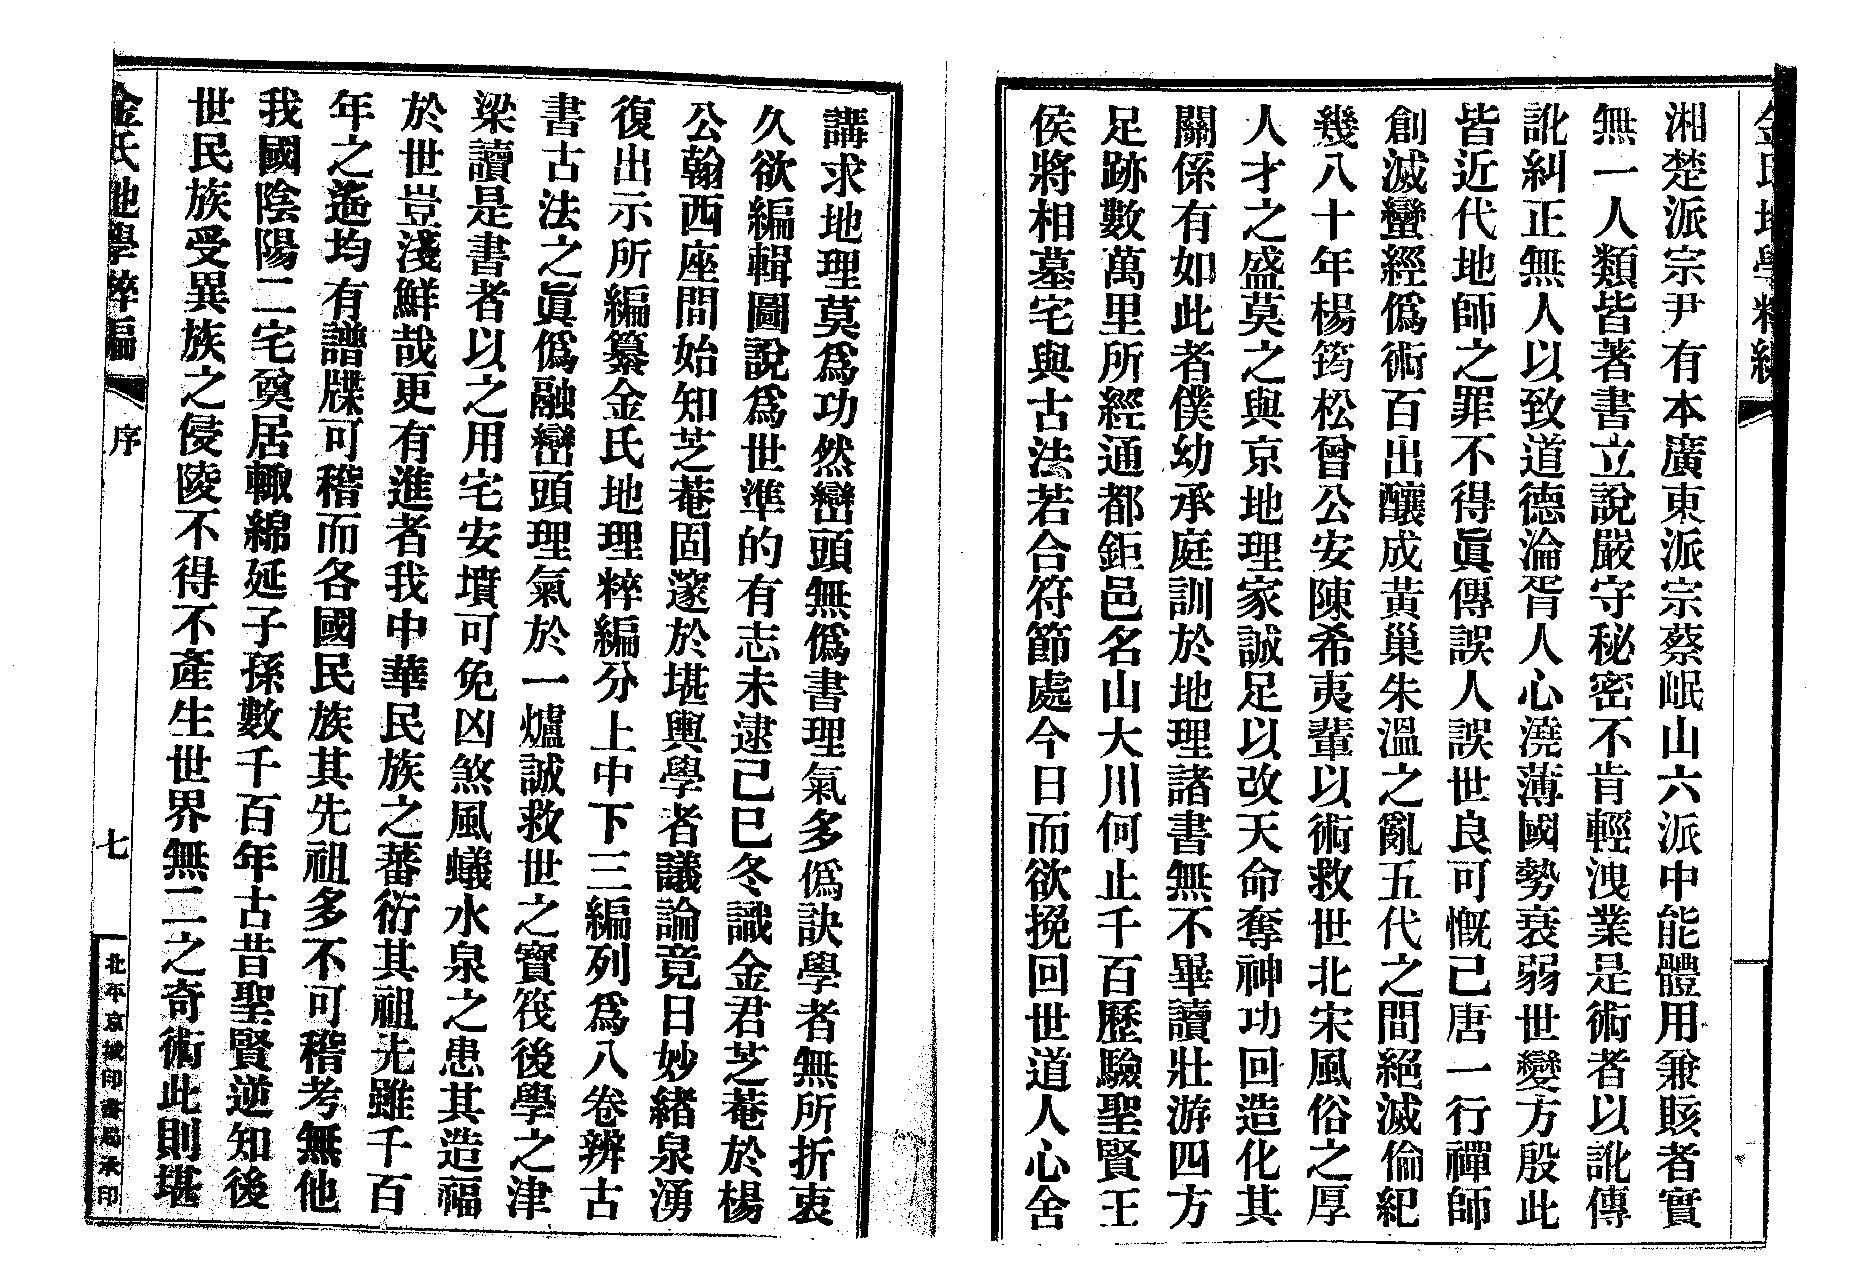 金氏地學粹編
湘楚派宗尹有本廣東派宗蔡岷山六派中能體用兼賅者實
無一人類皆著書立說嚴守秘密不肯輕洩業是術者以訛傳
訛糾正無人以致道德淪胥人心澆薄國勢衰弱世變方殷此
皆近代地師之罪不得眞傳誤人誤世良可慨已唐一行禪師
創滅蠻經僞術百出釀成黃巢朱溫之亂五代之間絕滅倫紀
幾八十年楊筠松曾公安陳希夷輩以術救世北宋風俗之厚
人才之盛莫之與京地理家誠足以改天命奪神功回造化其
關係有如此者僕幼承庭訓於地理諸書無不畢讀壯游四方
足跡數萬里所經通都鉅邑名山大川何止千百歷驗聖賢王
侯將相墓宅與古法若合符節處今日而欲挽回世道人心舍
講求地理莫爲功然巒頭無僞書理氣多僞訣學者無所折衷
久欲編輯圖說爲世準的有志未逮己巳冬識金君芝菴於楊
公翰西座間始知芝菴固邃於堪輿學者議論竟日妙緒泉湧
復出示所編纂金氏地理粹編分上中下三編列爲八卷辨古
書古法之眞僞融巒頭理氣於一爐誠救世之寶筏後學之津
梁讀是書者以之用宅安墳可免凶煞風蟻水泉之患其造福
於世豈淺鮮哉更有進者我中華民族之蕃衍其祖先雖千百
年之遙均有譜牒可稽而各國民族其先祖多不可稽考無他
我國陰陽二宅奠居輙綿延子孫數千百年古昔聖賢逆知後
世民族受異族之侵陵不得不產生世界無二之奇術此則堪
金氏地學粹編
序
七
北平京城印書局承印